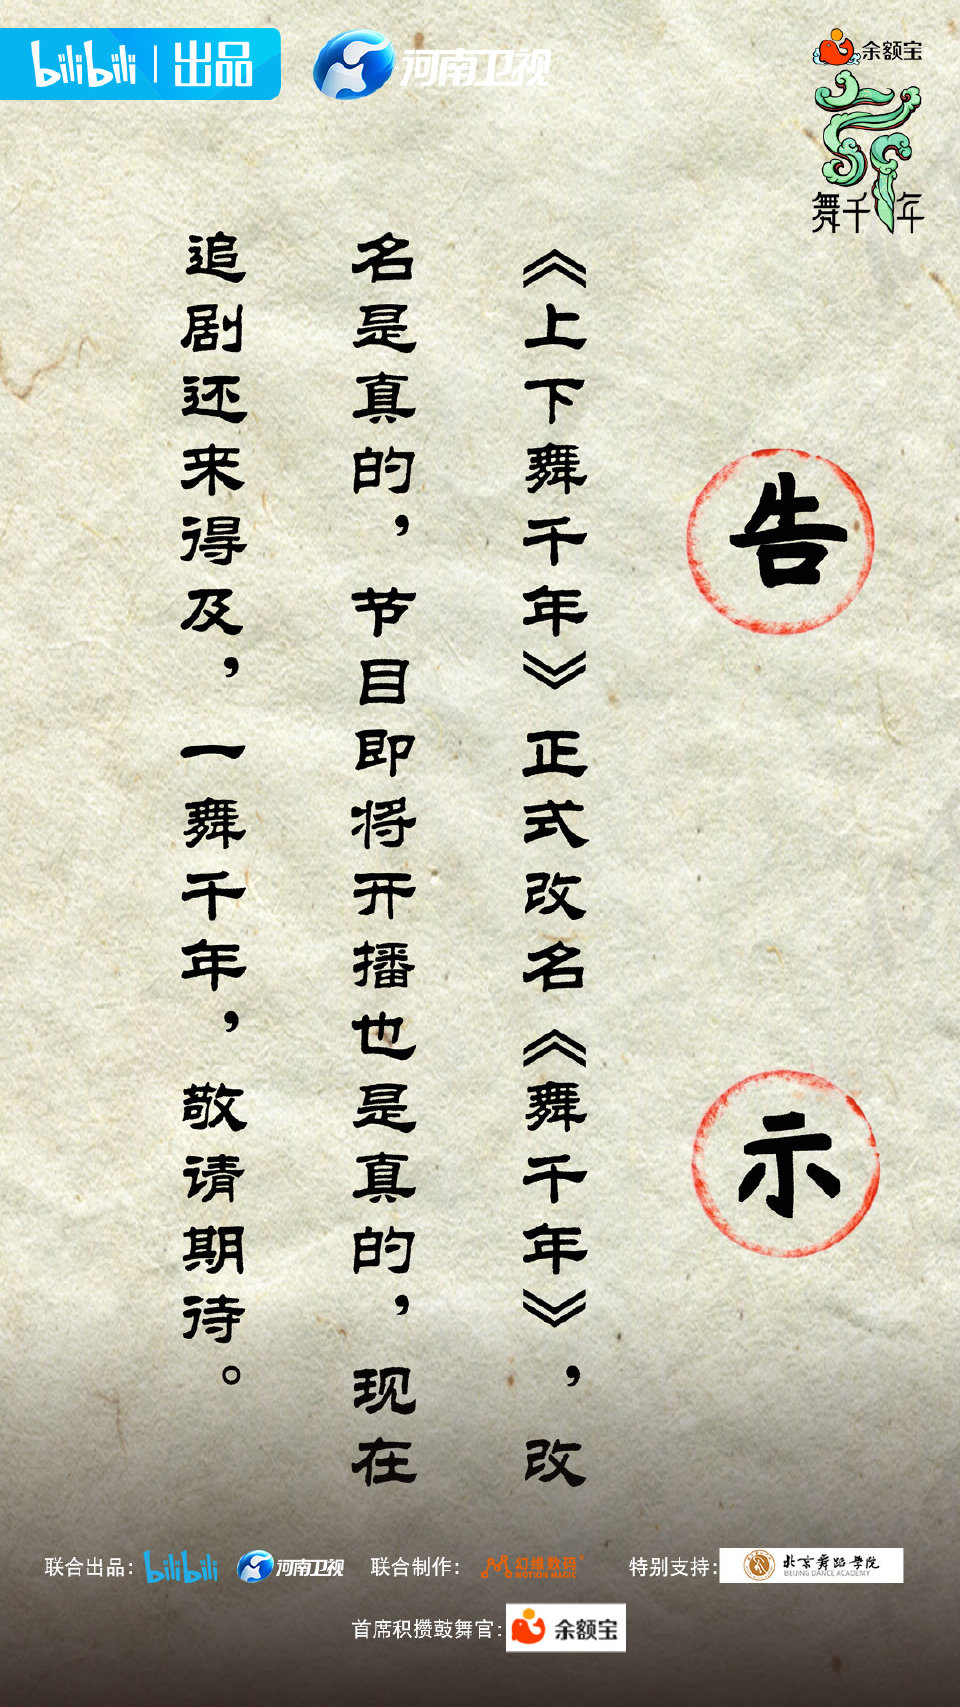 bilibili 出品
河南卫视
余额宝
舞千年
告示
《上下舞千年》正式改名《舞千年》，改
名是真的，节目即将开播也是真的，现在
追剧还来得及，一舞千年，敬请期待。
联合出品：bilibili 河南卫视 联合制作：幻维数码 MOTION MAGIC 特别支持：北京舞蹈学院 BEIJING DANCE ACADEMY
首席积攒鼓舞官：余额宝